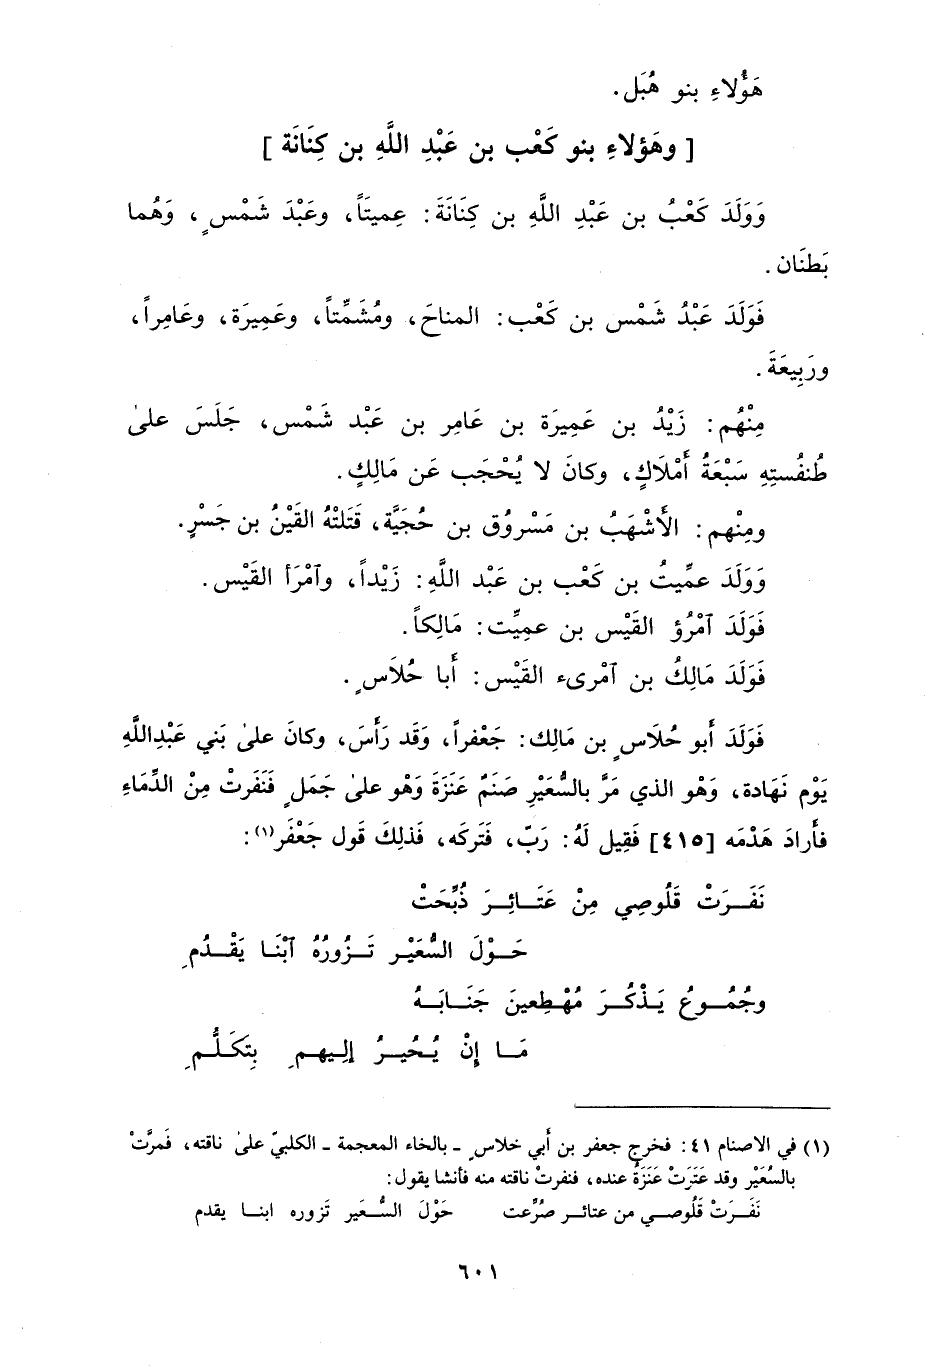 هَؤُلاءِ بنو هُبَل.
[ وهَؤلاءِ بنو كَعْب بن عَبْدِ اللَّهِ بن كِنَانَة ]
وَوَلَدَ كَعْبُ بن عَبْدِ اللَّهِ بن كِنَانَةَ: عِميتَاً، وعَبْدَ شَمْسٍ، وَهُما
بَطنَان.
فَوَلَدَ عَبْدُ شَمْس بن كَعْب: المناحَ، ومُشَمِّتاً، وعَمِيرَة، وعَامِراً،
ورَبِيعَةَ.
مِنْهُم: زَيْدُ بن عَمِيرَة بن عَامِر بن عَبْد شَمْس، جَلَسَ علىٰ
طُنفُستِهِ سَبْعَةُ أَمْلَاكٍ، وكانَ لا يُحْجَب عَن مَالِكٍ.
ومِنْهم: الأَشْهَبُ بن مَسْروُق بن حُجَيَّة، قَتَلتْهُ القَيْنُ بن جَسْرٍ.
وَوَلَدَ عمِّيتُ بن كَعْب بن عَبْد اللَّهِ: زَيْداً، وآمْرَأ القَيْس.
فَوَلَدَ آمْرُؤ القَيْس بن عمِيِّت: مَالِكاً.
فَوَلَدَ مَالِكُ بن آمْرىء القَيْس: أَبا حُلاَسٍ.
فَوَلَدَ أَبو حُلاسٍ بن مَالِك: جَعْفراً، وَقَد رَأَسَ، وكانَ علىٰ بَني عَبْدِاللَّهِ
يَوْم نَهَادة، وَهْو الذي مَرَّ بالسُّعَيْرِ صَنَمُ عَنَزَةَ وَهْو علىٰ جَملٍ فَنَفَرتْ مِنْ الدِّمَاءِ
فأَرادَ هَدْمَه [٤١٥] فَقِيل لَهُ: رَبّ، فَتَركَه، فَذلِكَ قَول جَعْفَر(١):
نَفَــرَتْ قَلُوصِي مِنْ عَتَــائِــرَ ذُبِّحَتْ
حَــوْلَ السُّعَيْــرِ تَــزُورُهُ آبْنَــا يَقْــدُمِ
وجُمُــوعُ يَــذْكُــرَ مُهْــطِعينَ جَنَــابَــهُ
مَــا إِنْ يُــحُيــرُ إليــهــمِ بِتَكَلُّــمِ
(١) في الاصنام ٤١: فخرج جعفر بن أَبي خلاسٍ ـ بالخاء المعجمة ـ الكلبيّ علىٰ ناقته، فَمرَّتْ
بالسُعَيْر وقد عَتَرَتْ عَنَزَةُ عنده، فنفرتْ ناقته منه فأنشا يقول:
نَفَــرَتْ قَلُوصــي من عتائــر صُرِّعت حَوْلَ السُّــعَير تَزوره ابنــا يقدم
٦٠١